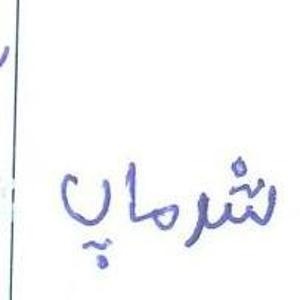 شرماپ